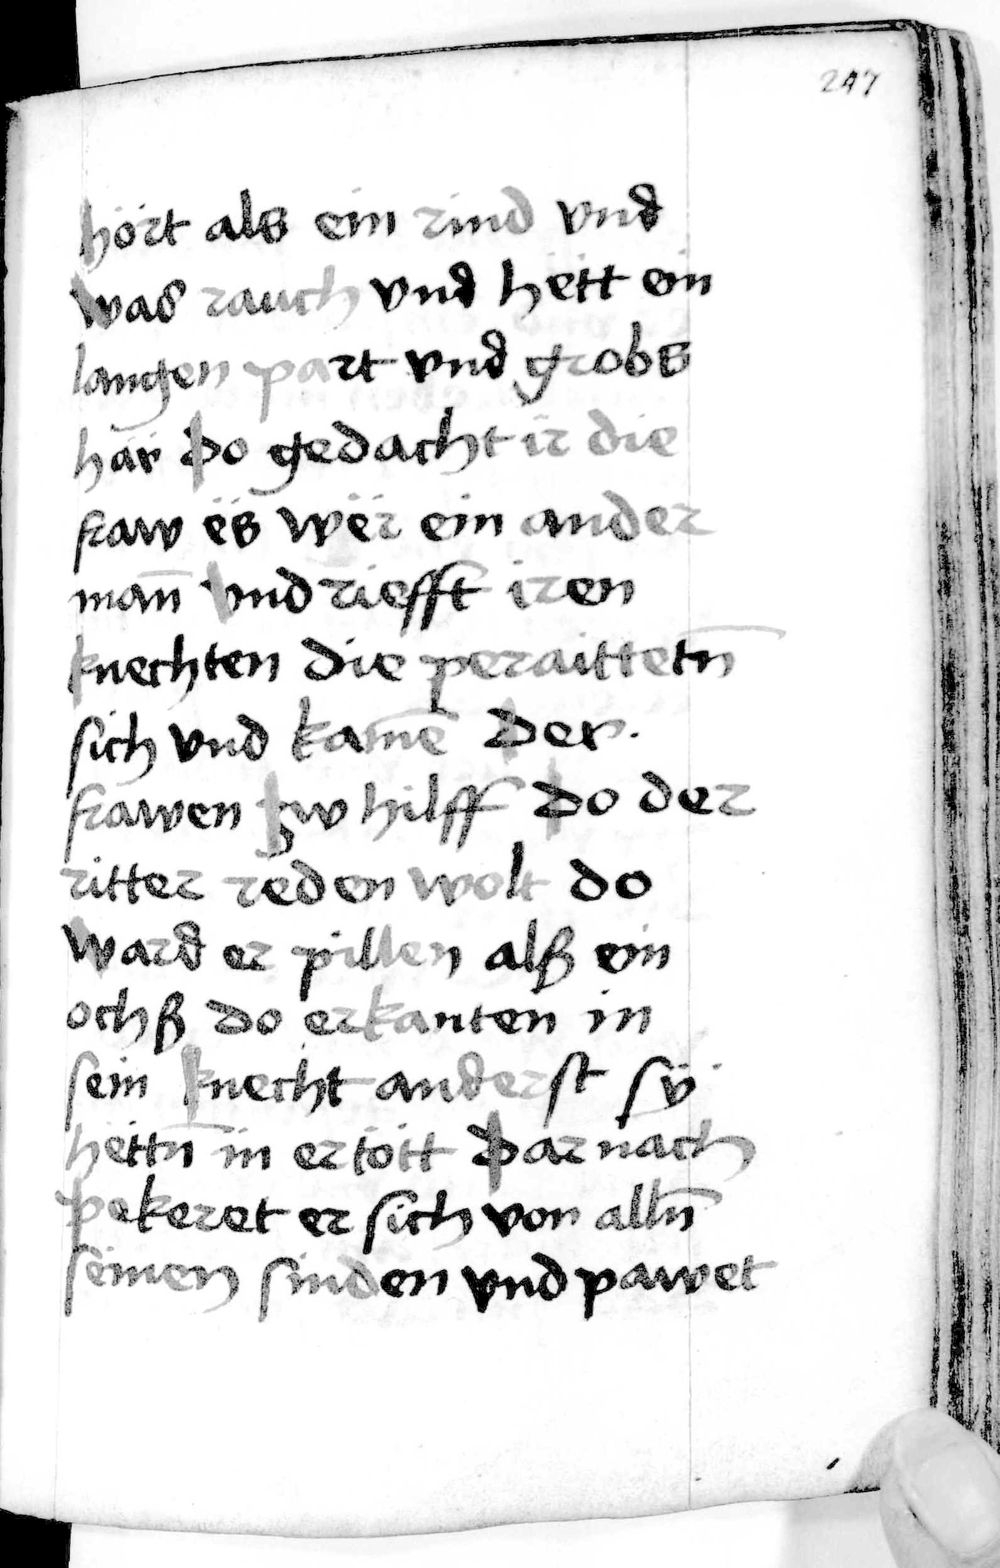 247
hört als ein rind vnd
was rauch vnd hett ein
langen part vnd grobs
här Do gedacht ir die
fraw ës wër ein ander
man̄ vnd riefft iren
knechten die peraittetn̄
sich vnd kamē̄ der
frawen zw hilff Do der
ritter reden wolt do
ward er pillen alß ein
ochß do erkanten in
sein knecht anderst sÿ
hëttn̄ in ertött Darnach
pekeret er sich von alln̄
seinen sinden vnd pawet